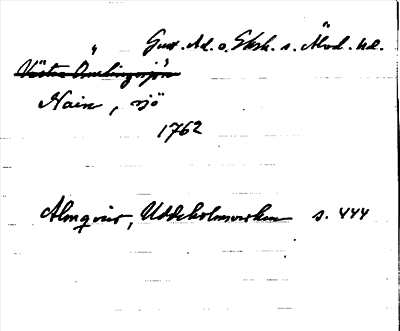 Gust. Ad. o. Eksh. s. Älvd. hd.
Västra Ämtingssjön
Nain, sjö
1762
Almquist, Uddeholmsverken s. 444